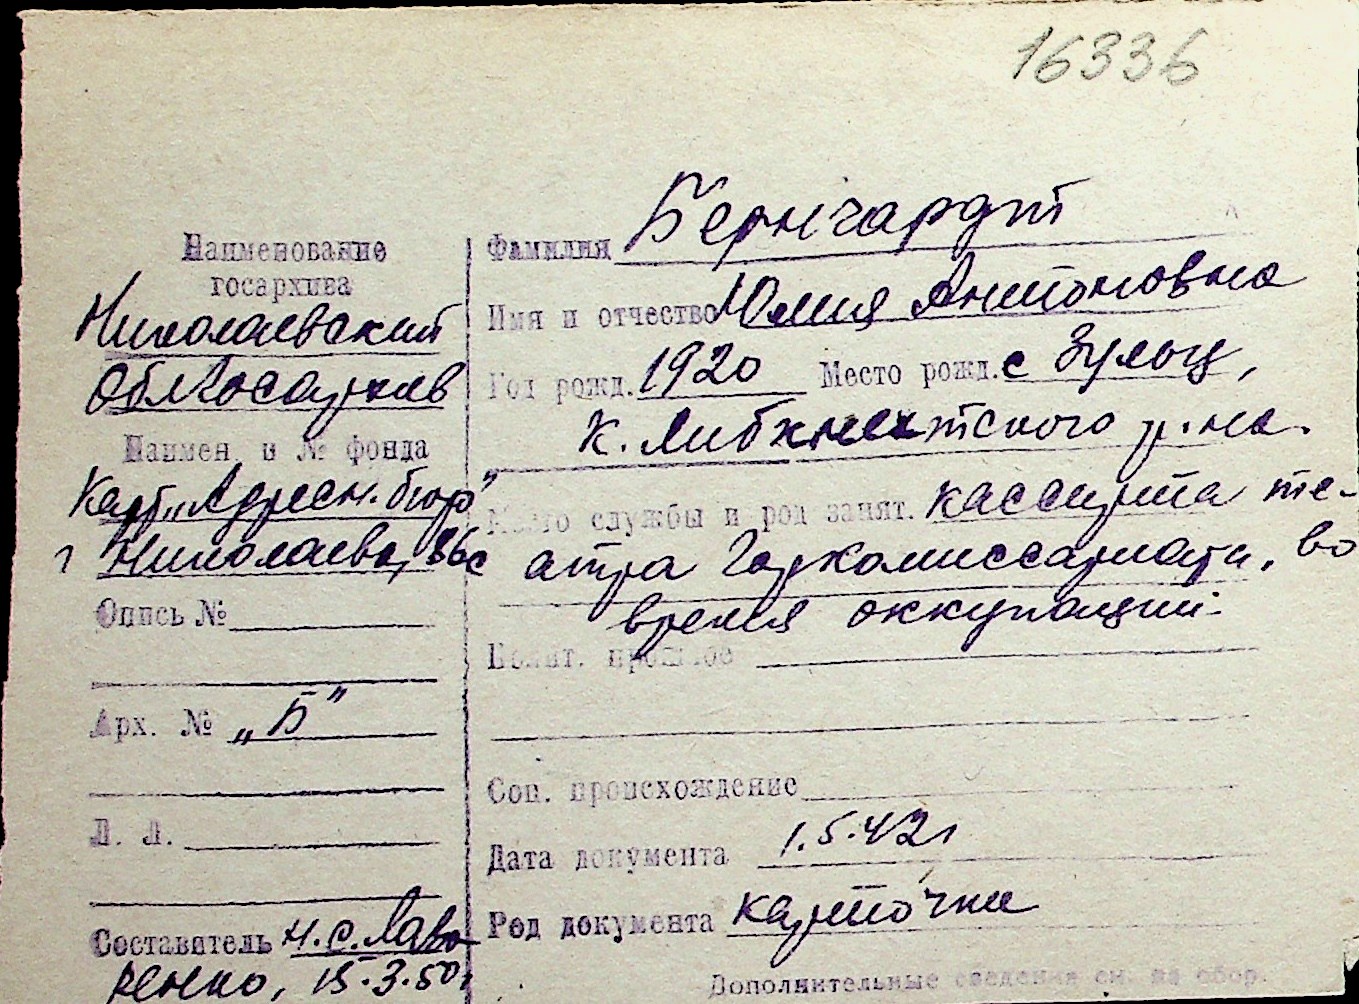 16336
Наименование
госархива
Николаевский
Облгосархив
Наимен. и № фонда
Карт. „Адресн. бюро"
г Николаева, 86с
Опись №
Арх. № „Б"
Л. Л.
Составитель Н.С. Лавр
ренко, 15.3.50г
Фамилия Бернгардт
Имя и отчество Юлия Антоновна
Год рожд. 1920 Место рожд. с Зульц,
К. Либкнехтского р.на.
Место службы и род занят. кассирша те-
атра Горкомиссариата, во
время оккупации.
Полит. прошлое
Соц. происхождение
Дата документа 1.5.42г
Род документа карточка
Дополнительные сведения см. на обор.